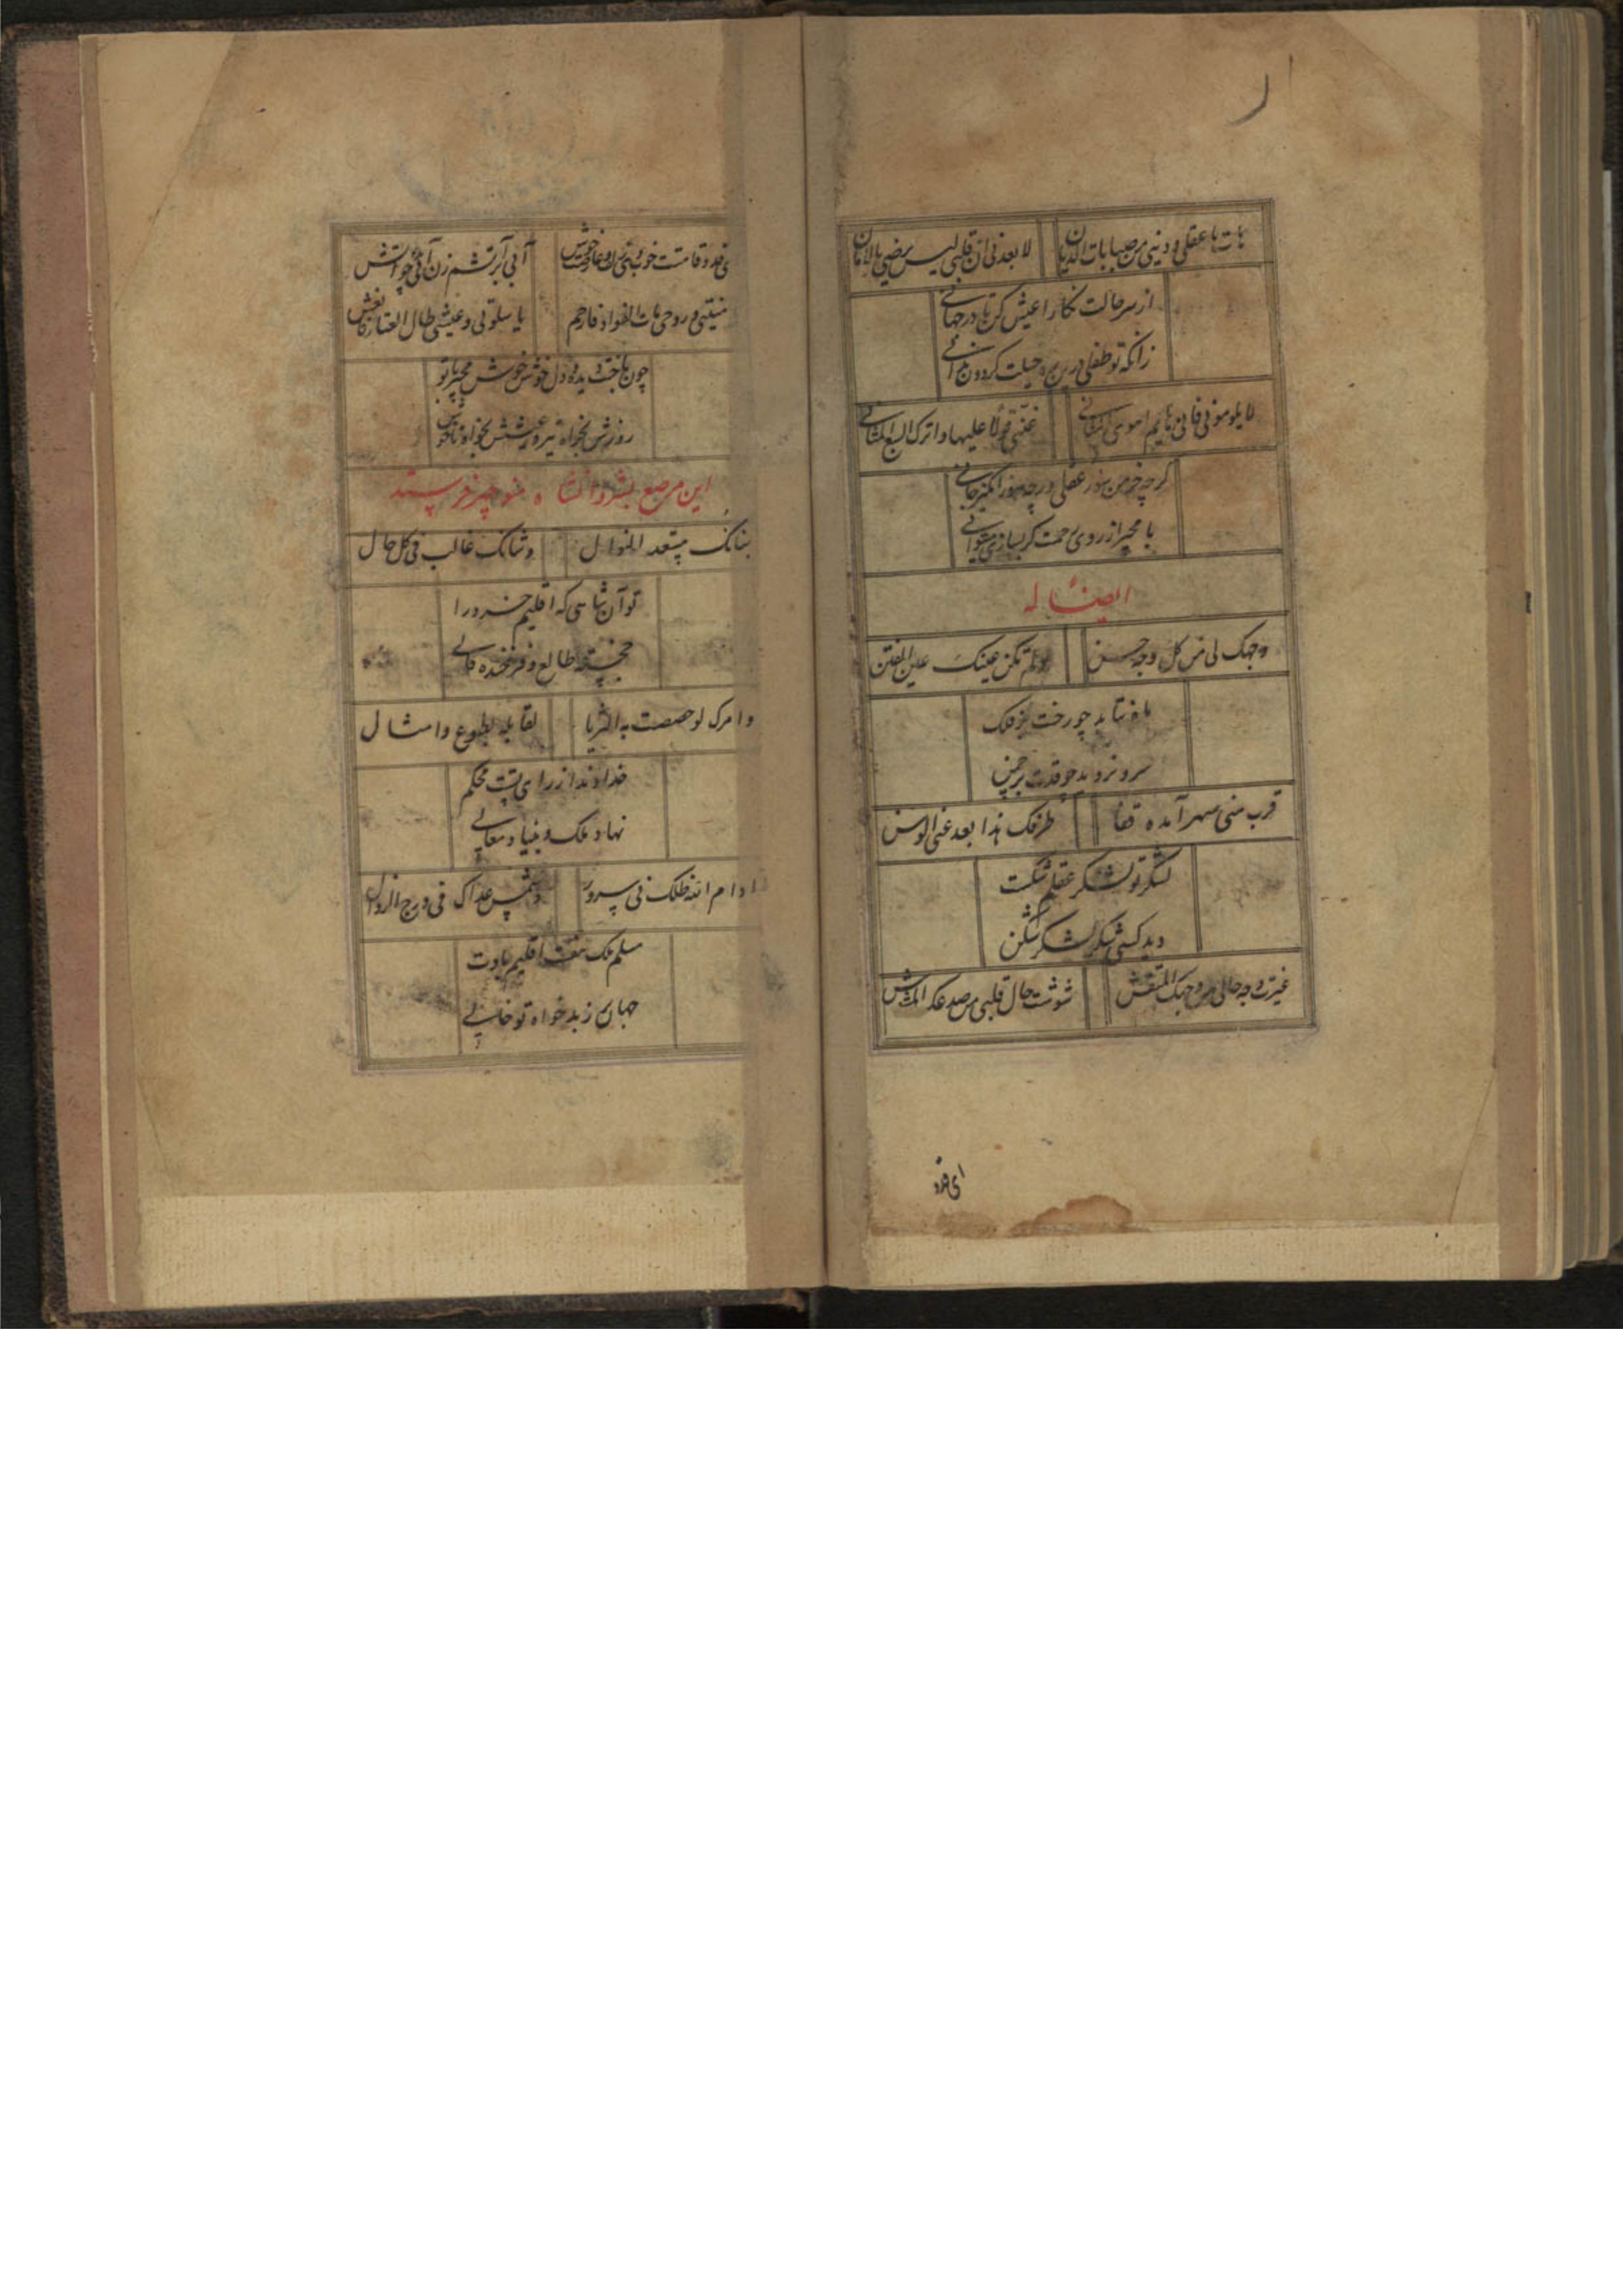 لا بعدنی ان قلبی لیس یرضی بالامان
از سر حالت نگارا عیش کن تا در جهانی
زانکه تو طفلی درین ره حیلت گردون ندانی
لا یلومونی فانی
گرچه خرمن سوز عقلی ورچه سوز انگیز جانی
با مجیر از روی رحمت گر بسازی میتوانی
ایضا له
وجهک لی من کل وجه حسن
ولم تکن عینک عین الفتن
ماه نتابد چو رخت بر فلک
سرو نروید چو قدت بر چمن
قرب منی سهرا آمده قفا
طرفک هذا بعد عنی الوسن
لشکر تو لشکر عقلم شکست
دید کسی شکر لشکر شکن
غیرت وجه حالی من وجهک المنقش
شوشت حال قلبی من صدغک المشوش
ای قد
ای قد و قامتت خوب وی زلف و عارضت خوش
آبی بر آتشم زن آبی چو آتش
منیتی و روحی مات الفواد فارحم
یا سلوتی و عیشی طال العثار فانعش
چون باخت دیده و دل خوش خوش مجیر با تو
روزش مخواه تیره عیشش مخواه ناخوش
این مرصع بشروانشاه منوچهر فرستد
مستعد النوال
وشانک غالب فی کل حال
تو آن شاهی که اقلیم خرد را
خجسته طالع و فرخنده فالی
وامرک لو خصصت به الثریا
لقابله بطوع وامتثال
خداوندا ز رای تست محکم
نهاد ملک و بنیاد معالی
ادام الله ظلک فی سرور
وشمس عداک فی درج الزوال
مسلم ملک هفت اقلیم بادت
جهان ز بدخواه تو خالی